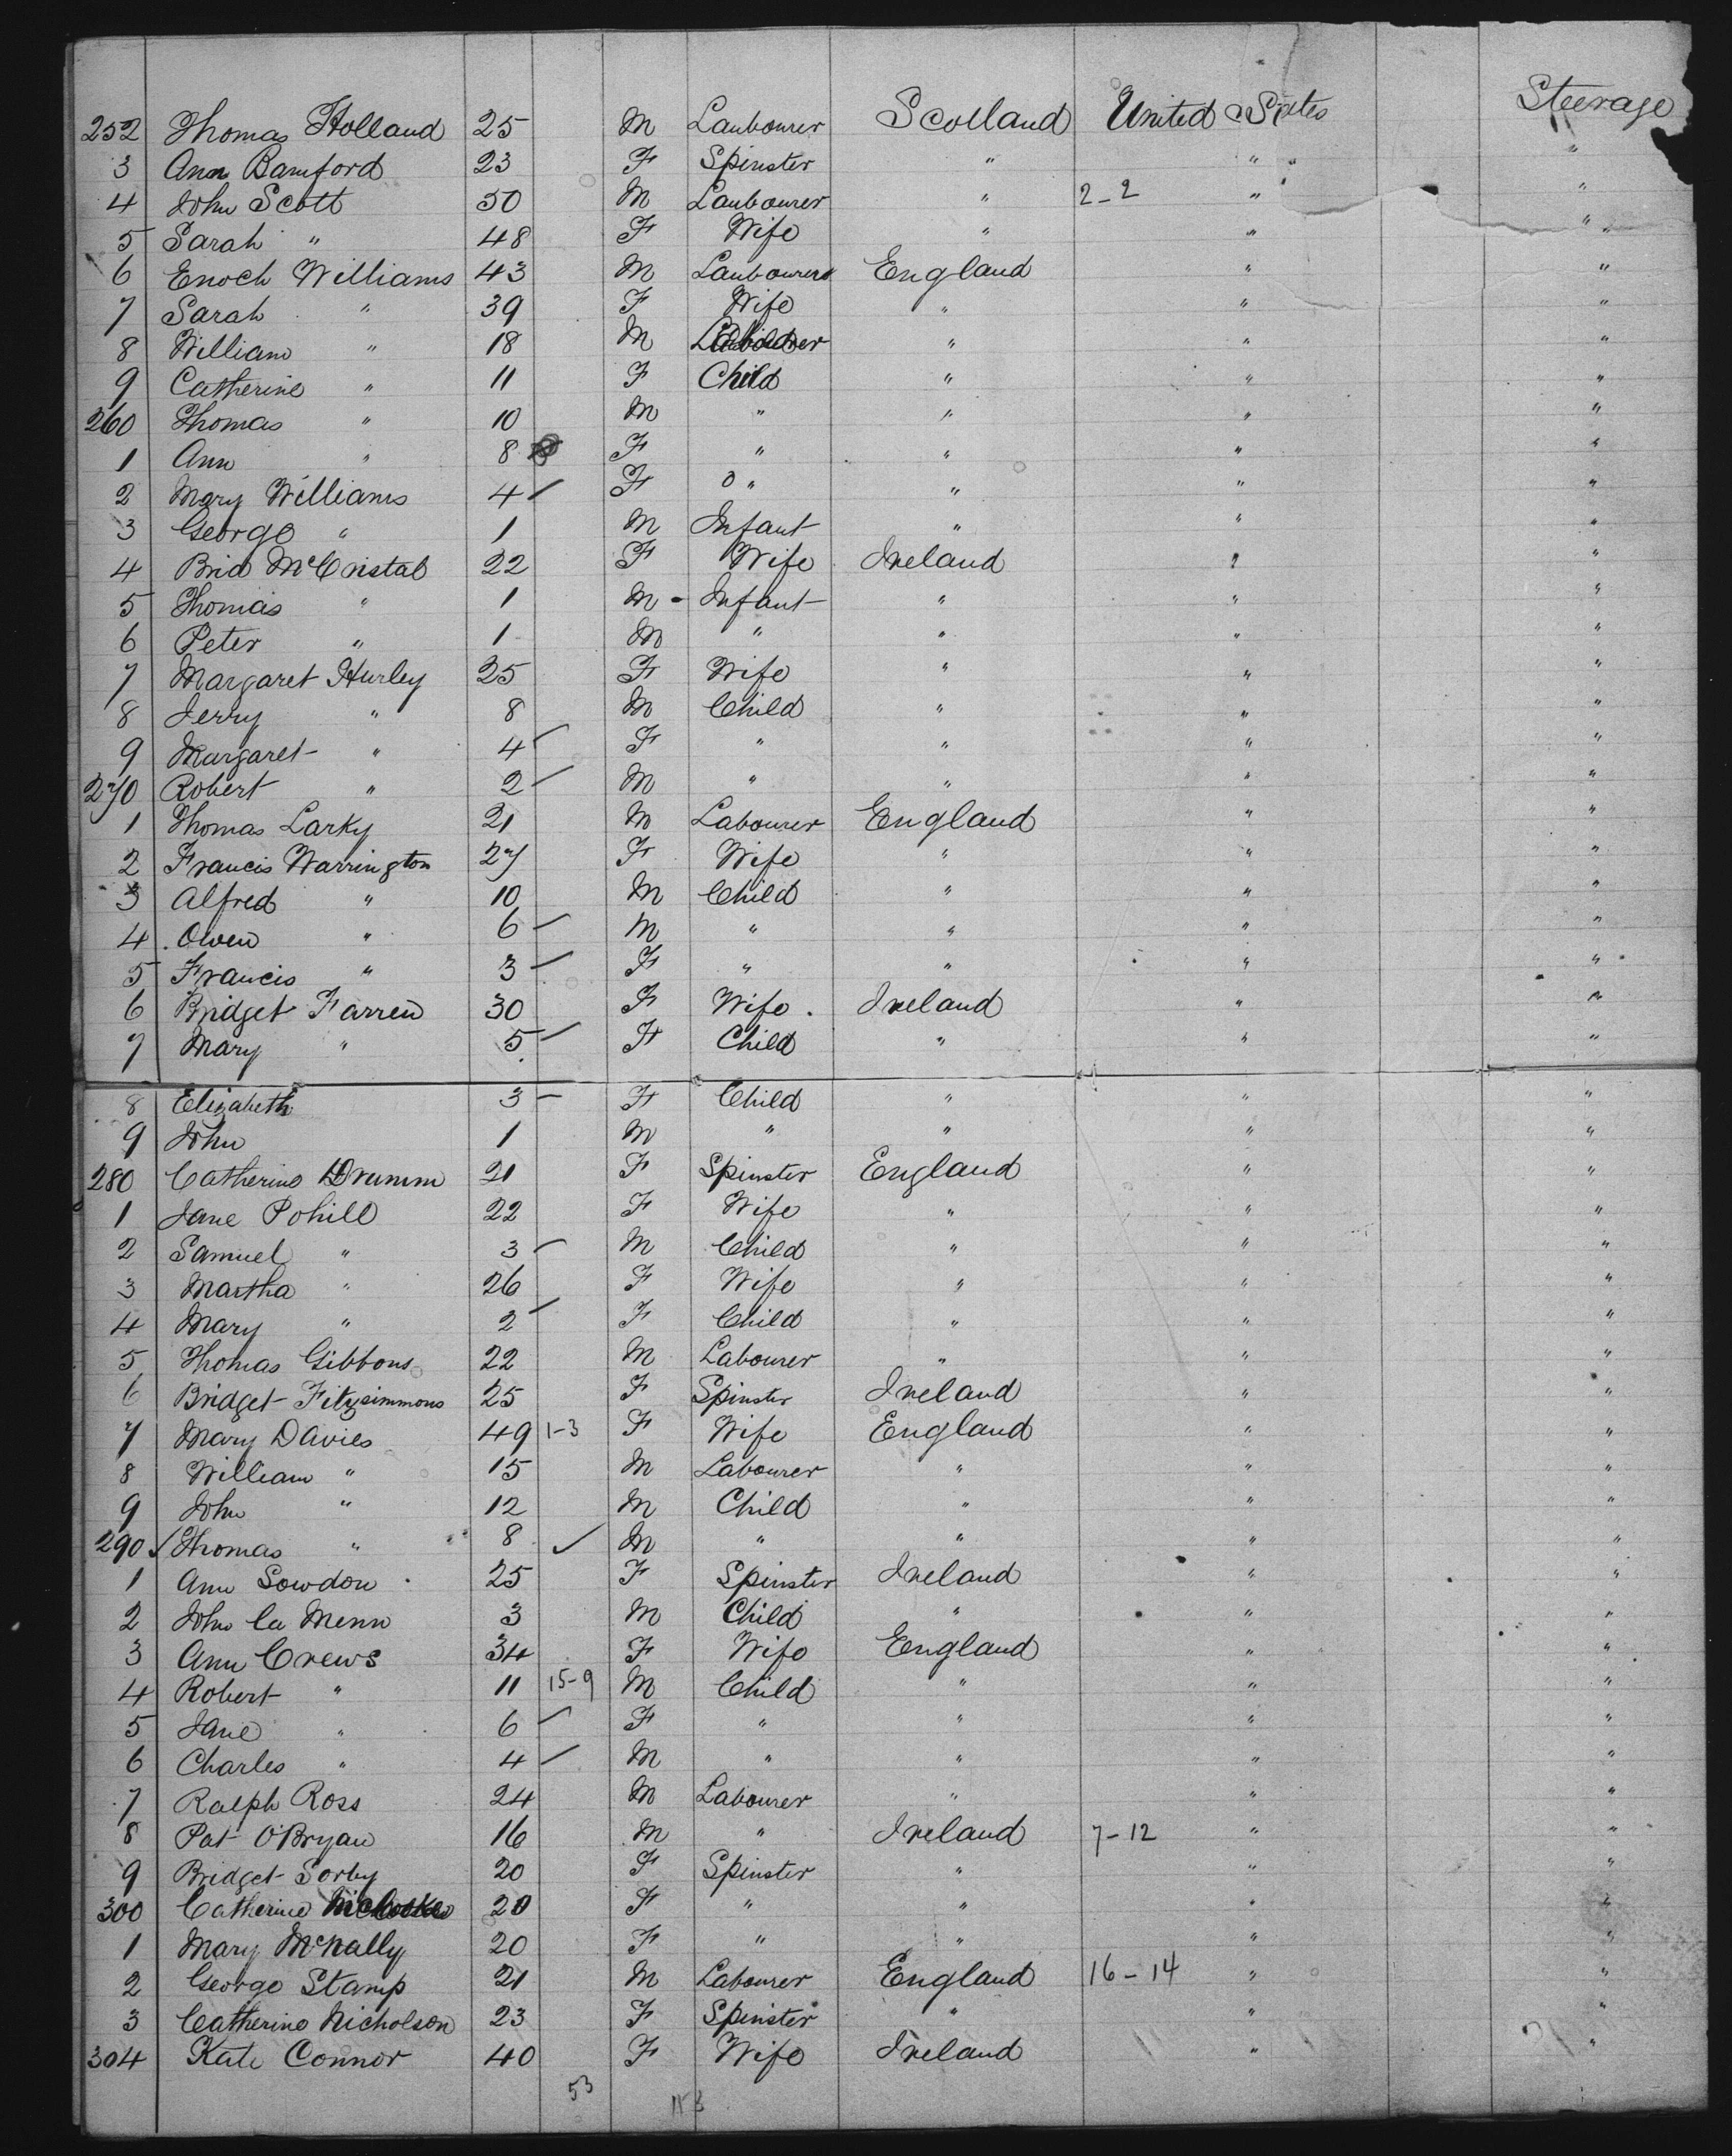 252 Thomas Holland 25 M Laubourer Scotland United States Steerage
3 Ann Bamford 23 F Spinster " " " "
4 John Scott 50 M Laubourer " 2-2 " "
5 Sarah " 48 F Wife " " "
6 Enoch Williams 43 M Laubourer England " "
7 Sarah " 39 F Wife " " "
8 William " 18 M Labourer " " "
9 Catherine " 11 F Child " " "
260 Thomas " 10 M " " " "
1 Ann " 8 F " " " "
2 Mary Williams 4 F " " " "
3 George " 1 M Infant " " "
4 Brid McCristal 22 F Wife Ireland " "
5 Thomas " 1 M - Infant " " "
6 Peter " 1 M " " " "
7 Margaret Hurley 25 F Wife " " "
8 Jerry " 8 M Child " " "
9 Margaret " 4 F " " " "
270 Robert " 2 M " " " "
1 Thomas Larky 21 M Labourer England " "
2 Francis Warrington 27 F Wife " " "
3 Alfred " 10 M Child " " "
4 Owen " 6 M " " " "
5 Francis " 3 F " " " "
6 Bridget Farren 30 F Wife Ireland " "
7 Mary " 5 F Child " " "
8 Elizabeth 3 F Child " " "
9 John 1 M " " " "
280 Catherine Drumm 21 F Spinster England " "
1 Jane Pohill 22 F Wife " " "
2 Samuel " 3 M Child " " "
3 Martha " 26 F Wife " " "
4 Mary " 2 F Child " " "
5 Thomas Gibbons 22 M Labourer " " "
6 Bridget Fitzsimmons 25 F Spinster Ireland " "
7 Mary Davies 49 1-3 F Wife England " "
8 William " 15 M Labourer " " "
9 John " 12 M Child " " "
290 Thomas " 8 ✓ M " " " "
1 Ann Sowdon 25 F Spinster Ireland " "
2 John La Menn 3 M Child " " "
3 Ann Crews 34 F Wife England " "
4 Robert " 11 15-9 M Child " " "
5 Jane " 6 F " " " "
6 Charles " 4 M " " " "
7 Ralph Ross 24 M Labourer " " "
8 Pat O'Bryan 16 M " Ireland 7-12 " "
9 Bridget Sorby 20 F Spinster " " "
300 Catherine 20 F " " " "
1 Mary McNally 20 F " " " "
2 George Stamp 21 M Labourer England 16-14 " "
3 Catherine Nicholson 23 F Spinster " " "
304 Kate Connor 40 F Wife Ireland " "
53